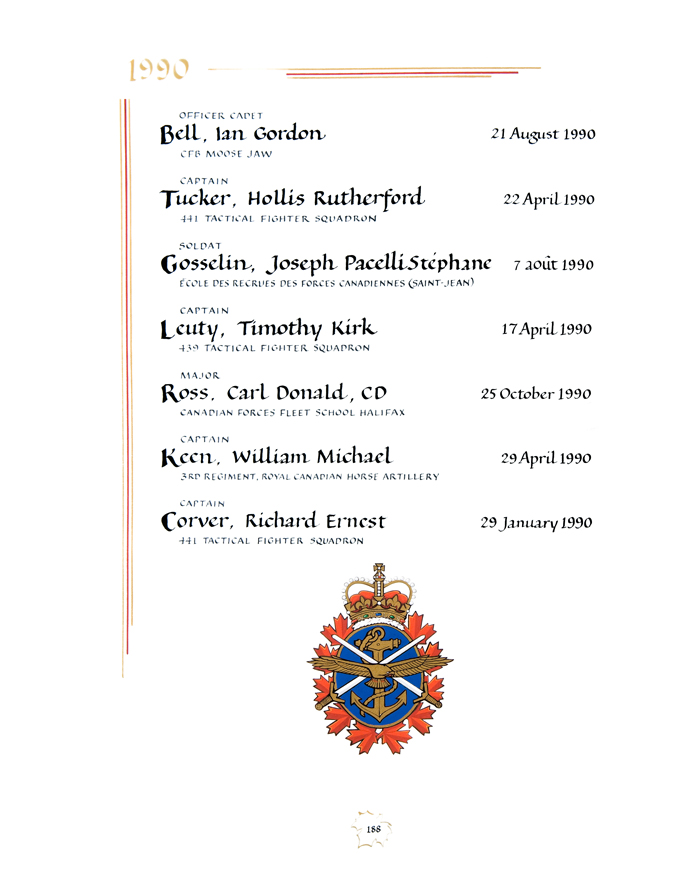 1990
OFFICER CADET
Bell, Ian Gordon 21 August 1990
CFB MOOSE JAW
CAPTAIN
Tucker, Hollis Rutherford 22 April 1990
441 TACTICAL FIGHTER SQUADRON
SOLDAT
Gosselin, Joseph Pacelli Stéphane 7 août 1990
ÉCOLE DES RECRUES DES FORCES CANADIENNES (SAINT-JEAN)
CAPTAIN
Leuty, Timothy Kirk 17 April 1990
439 TACTICAL FIGHTER SQUADRON
MAJOR
Ross, Carl Donald, CD 25 October 1990
CANADIAN FORCES FLEET SCHOOL HALIFAX
CAPTAIN
Keen, William Michael 29 April 1990
3RD REGIMENT, ROYAL CANADIAN HORSE ARTILLERY
CAPTAIN
Corver, Richard Ernest 29 January 1990
441 TACTICAL FIGHTER SQUADRON
188